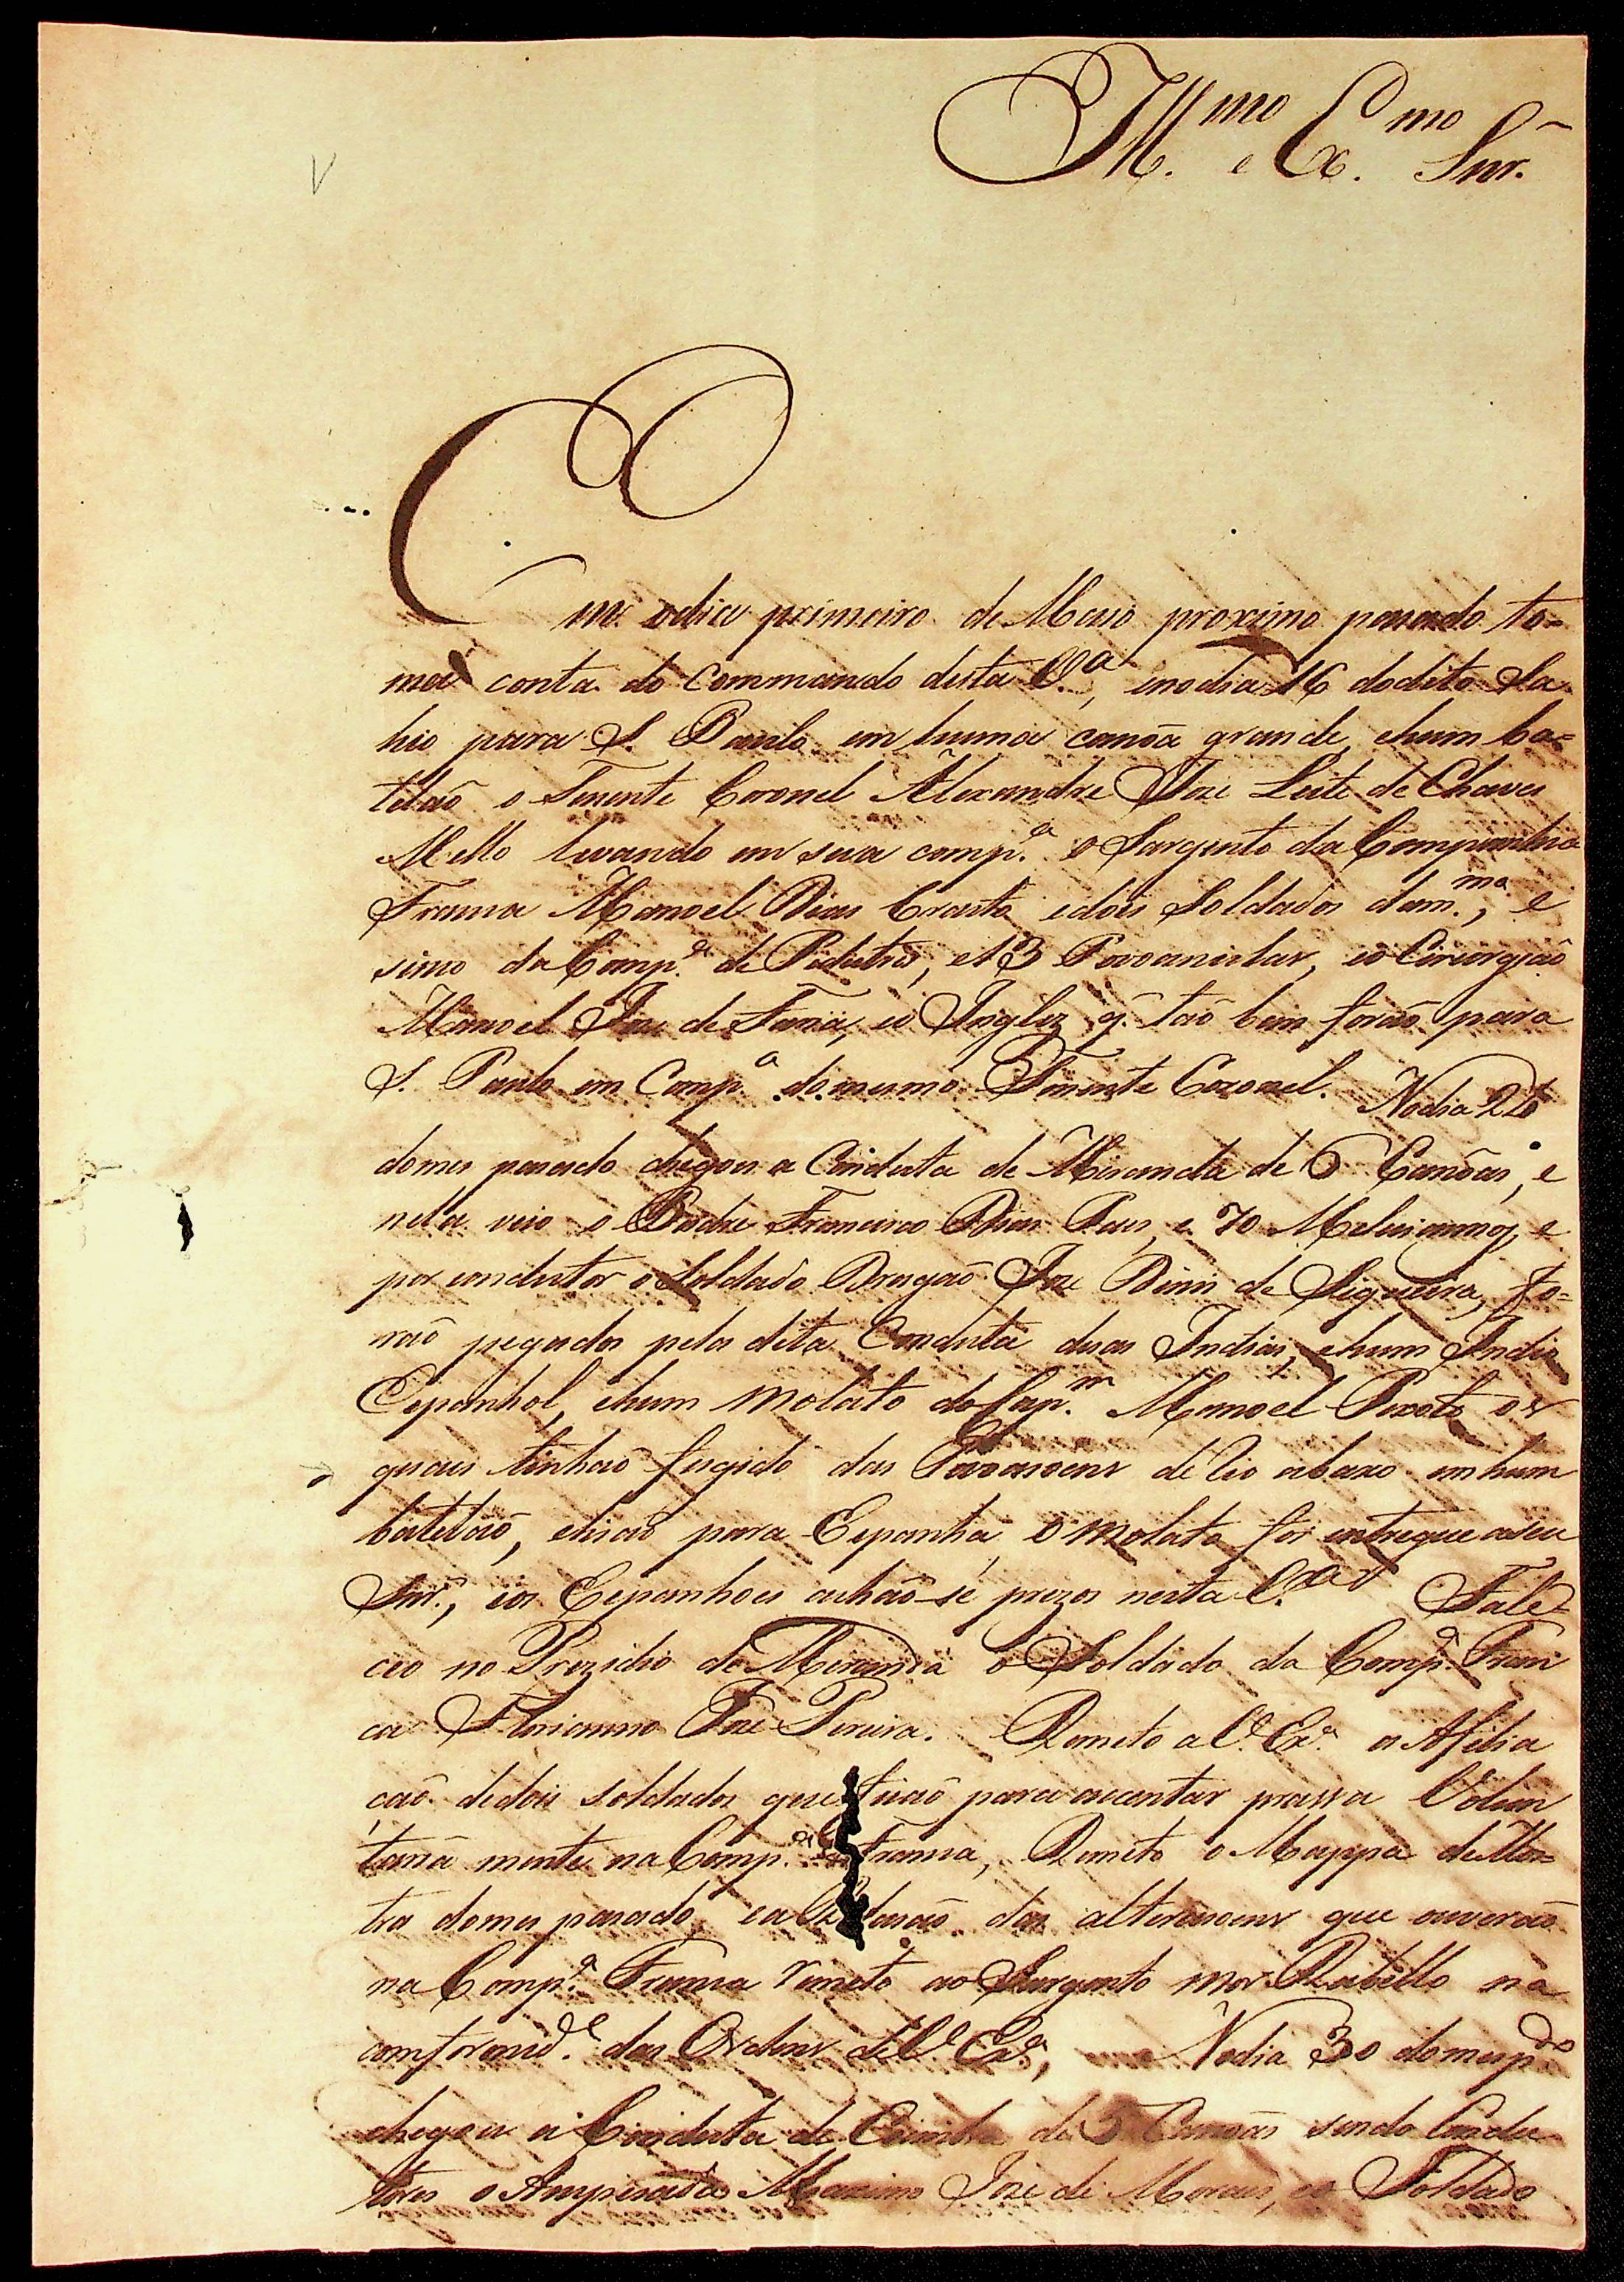 Ill.mo e Ex.mo Snr.
Em o dia primeiro de Maio proximo pasado to=
mei conta do Commando desta V.a, eno dia 16 do dito Sa
hio para S. Paulo em huma canôa grande, ehum ba=
telaõ o Tenente Coronel Alexandre Joze Leite de Chaves
Mello levando em sua comp.a o Sargento da Companhia
Franca Manoel Dias Crasto edois Soldados dam.ma, e
simo da Comp.a de Pedestres, e13 Povoanistas, eo Cirurgiaõ
Manoel Joze de Faria, eo Inglez q. taõ bem foraõ para
S. Paulo em Comp.a do mesmo Tenente Coronel. Nodia
domes pasado chegou a Conducta de Miranda de 6 Canôas, e
nela veio o Padre Francisco Dias Paes, e 70, e
por condutor o Soldado Dragaõ Joze Dinis de Siqueira, fo=
raõ pegados pela dita Conducta duas Indias, ehum Indio
Espanhol, ehum molato do Cap.m Manoel Paxoto os
quais tinhaõ fugido das Povoasoens de Rio abaxo em hum
batelaõ, ehiaõ para Espanha, o molato foi entregue aseu
Snr., eos Espanhoes achaõ-se prezos nesta V.a Fale=
ceo no Prezidio de Miranda o Soldado da Comp.a Fran
ca Floriano Joze Pereira. Remeto a V. Ex.a as Afilia
çaõ dedois soldados que ficaõ para acentar prassa Volun
taria mente na Comp.a Franca, Remeto o Mappa de Mos=
tra domes pasado, ea das alterasoens que ouveraõ
na Comp.a Franca remeto ao Sargento mor Rabello na
comformid.e das Ordens de V. Ex.a, Nodia 30 domes p.do
chegou a Conducta de Coimbra de 5 Canoas sendo Condu
tores o Anspesada Maximo Joze de Moraes, eo Soldado